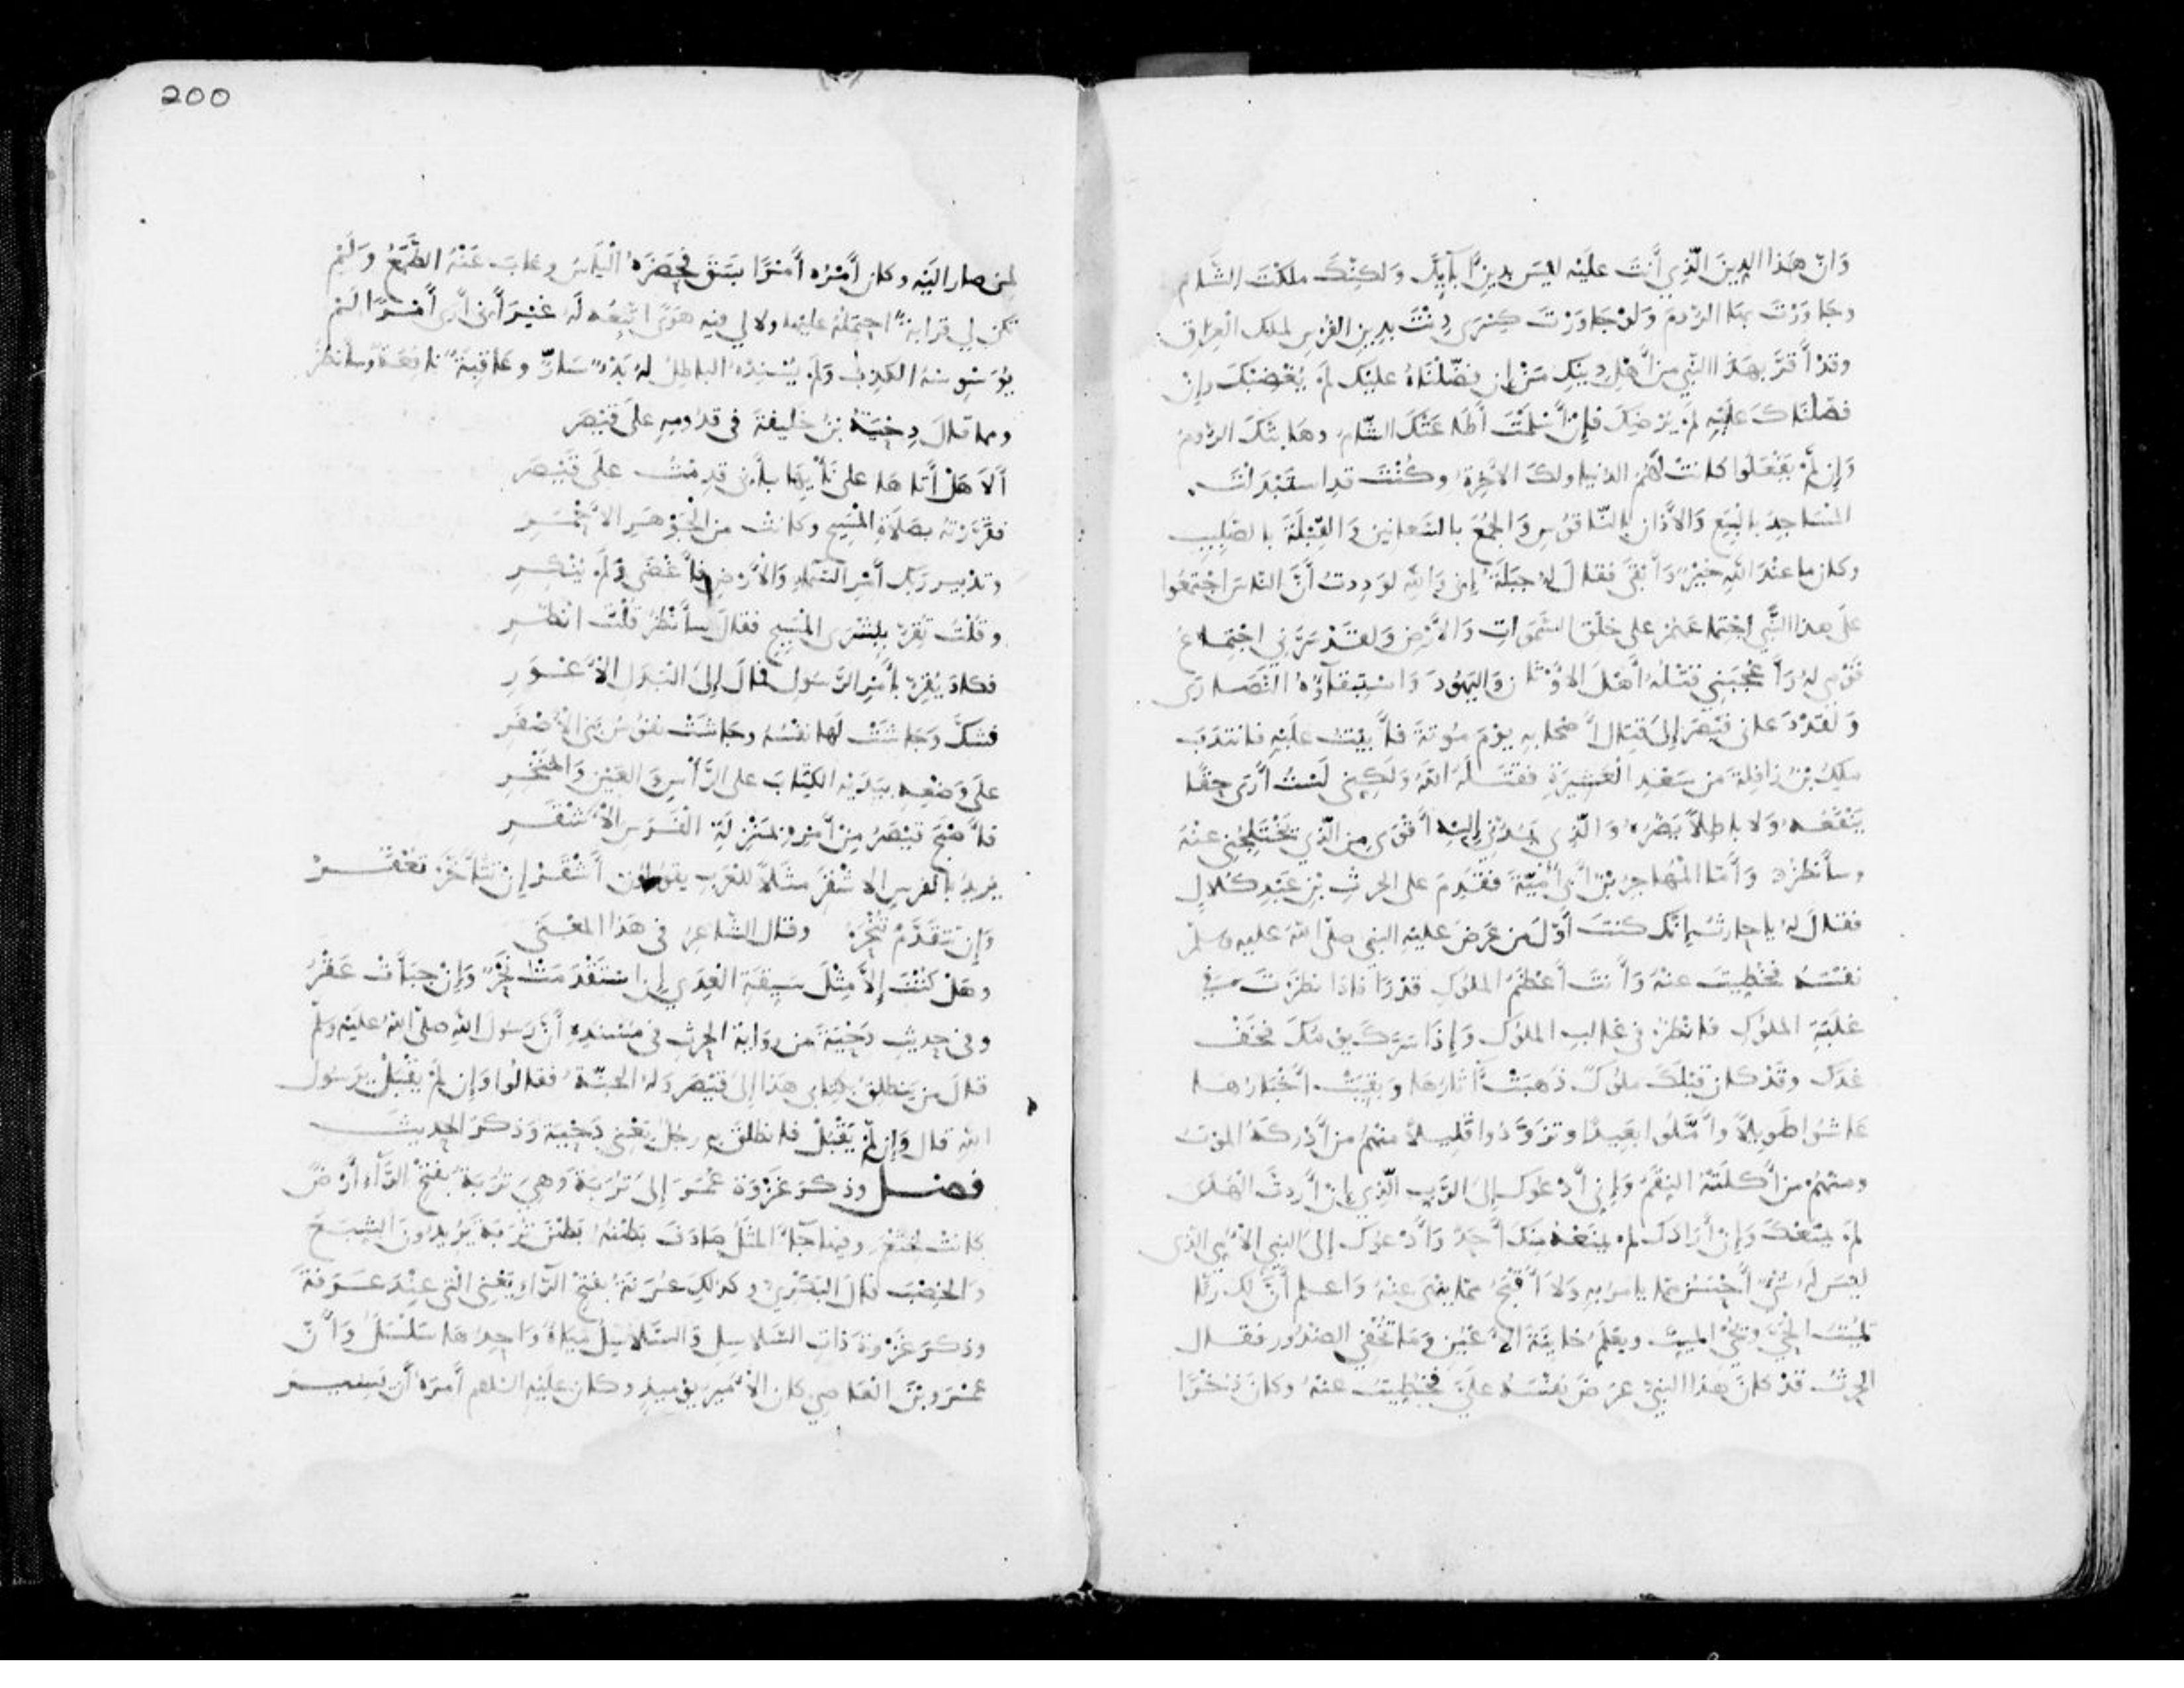 وَانّ هَذا الدِينَ الّذِي أنتَ علَيْه ليْسَ بدِينِ آبَايِكَ وَلكنّكَ ملكْتَ الشَّام
وجَاوَرْتَ بهَا الرُّومَ وَلوْ جَاوَرْتَ كِسْرَى دِنْتَ بدِينِ الفُرْسِ لملك الْعِرَاقِ
وقدْ أقرَّ بهَذا النَّبي منْ أهْلِ دِينِكَ مَنْ إن فضّلْنَاهُ عليْك لَمْ يُغْضِبْكَ وإنْ
فضّلنَاكَ عَلَيْهِ لمْ يُرْضِكَ فإنْ أسْلمْتَ أطَاعَتْكَ الشّامُ وهَابتْكَ الرُّومُ
وَإن لَمْ يَفْعَلُوا كانتْ لَهُمُ الدّنيا ولكَ الآخرَةُ وكُنْتَ قدِ استَبْدَلْتَ
المْسَاجِدَ بالبِيَعِ وَالأذَان بالنّاقُوسِ وَالجُمَعَ بالشعانِين وَالقِبْلَةَ بالصّلِيبِ
وكان ما عنْدَ اللهِ خيْرٌ وَأبْقَى فقالَ لهُ جبَلَةُ إنى وَاللهِ لوَدِدتُ أنَّ النّاسَ اجْتمعُوا
علَى هذا النَّبي اجْتِمَاعَهُمْ على خلْقِ السّمَوَاتِ وَالأرْضِ وَلقَدْ سَرَّني اجْتِمَاعُ
قوْمِي لهُ وَأعْجَبَنِي قتْلُهُ أهْلَ الأوْثَانِ وَاليَهُودَ وَاسْتِبْقاؤُهُ النّصَارَى
وَلقدْ دَعاني قيْصَرُ إلى قِتَالِ أصْحابِهِ يوْمَ مُوتَةَ فأبيْتُ عليْهِ فانتَدَبَ
ملِكَ بْنَ زافِلَةَ منْ سَعْدِ الْعَشِيرَةِ فقتَلهُ اللهُ وَلَكِنِي لَسْتُ أرَى حقًّا
يَنْفَعُهُ ولا باطِلاً يَضُرُّهُ وَالّذِي يَمُدُّنِي إليْهِ أقْوَى مِنَ الّذِي يَخْتَلِجُنِي عنْهُ
وسأنظُرُ وَأمّا المُهَاجِرُ بْنُ أبي أُمَيّةَ فقَدِمَ على الحرثِ بْنِ عَبْدِ كُلالٍ
فقالَ لهُ يا حارثُ إنّك كنتَ أوّلَ من عَرَضَ عليْهِ النبي صلّى اللهُ عليه وسلّم
نفسَهُ فخُطِيتَ عنْهُ وَأنتَ أعْظمُ المُلوكِ قدْرًا فإذا نظرْتَ في
غلَبَةِ الملُوكِ فانْظُرْ في غالبِ الملُوكِ وَإذا سَرَّكَ يومُكَ فخَفْ
غدَك وقَدْ كان قبْلكَ ملُوكٌ ذَهبَتْ آثارُهَا وَبقِيَتْ أخْبَارُها
عاشُوا طَوِيلاً وأمّلُوا بَعِيدًا وتزَوّدُوا قَلِيلاً منْهُمْ مَنْ أدْرَكَهُ الموْتُ
ومنْهُمْ مَنْ أكلَتْهُ النِقَمُ وَإني أدْعُوك إلى الرّبِ الّذِي إنْ أرَدْتَ الْهُدَى
لَمْ يمنَعْكَ وَإنْ أرَادَكَ لَمْ يمنَعْهُ منْكَ أحَدٌ وَأدْعُوكَ إلى النبي الأُمّي الذي
ليْسَ لهُ شيْءٌ أحْسَنُ ممّا يأمُرُ بهِ وَلا أقْبَحُ ممّا ينْهَى عنْهُ وَاعلم أنّ لك رَبًّا
يُميتُ الحيَّ ويُحْيي الميّتَ ويعْلمُ خائِنَةَ الأعْيُنِ وَمَا تُخْفِي الصُدُور فقال
الحرثُ قدْ كانَ هذا النبيُّ عرَضَ نفْسَهُ علَيَّ فخُطِيتُ عنهُ وكان ذُخْرًا
لمن صار اليَه وكان أمْرُه أمْرًا بسَقَ فحَضَرَهُ الْيَأسُ وغابَ عَنْهُ الطّمَعُ وَلَمْ
تكن لي قرَابةٌ احْتمِلُهُ عليْها ولا لي فيهِ هَوًى اتْبَعُه لَهُ غيْرَ أنى أرَى أمْرًا لَمْ
يُوَسْوِسْهُ الكذِبُ وَلَمْ يُسْنِدْهُ الباطِلُ لهُ بَدْءٌ سَارٌّ وعَاقِبَةٌ نافِعَةٌ وسأنظرُ
ومما قالَ دِحْيَةُ بْنُ خليفةَ في قدُومِهِ علَى قيْصَر
ألاَ هَلْ أتَاهَا على نَأْيِهَا بأَنى قدِمْتُ علَى قيْصَر
فقرّرْتهُ بصَلاةِ المَسِيحِ وكانتْ مِنَ الجَوْهَرِ الأحْمَرِ
وتدْبِيرِ رَبّكَ أمْرَ السّماءِ وَالأرْضِ فأغْضَى وَلَمْ يُنْكِرِ
وقُلْتُ تُقِرُّ ببِشْرَى المَسِيحِ فقالَ سأنْظُرُ قُلْتُ انظُرِ
فكادَ يُقِرُّ بأمْرِ الرّسُولِ فمَالَ إلىَ البَدَلِ الأعْوَرِ
فشكَّ وَجَاشَتْ لَها نفْسُهُ وجَاشَتْ نفُوسُ بَنِي الأصْفَرِ
علَى وَضْعِهِ بِيَدَيْهِ الكِتَابَ على الرّأسِ وَالعَيْنِ وَالمَنْخَرِ
فأصْبَحَ قيْصَرُ مِنْ أمْرِهِ بمَنْزِلَةِ الفَرَسِ الأشْقَرِ
يُرِيدُ بالفرسِ الأشْقَرِ مثَلاً للعَرَبِ يقولون أشْقَرُ إن تَتأخّرْ تُعْقَرْ
وَإنْ تَتَقَدّمْ تُنْحَرْ وقال الشّاعِرُ في هَذا المعْنَى
وهَلْ كُنْتَ إلاّ مِثْلَ سَيِقَةِ العِدَى إنِ استَقْدَمَتْ نَحْرٌ وَإنْ جبَأتْ عَقْرُ
وفي حديثِ دَحْيَةَ من روَاية الحرثِ في مُسْندِهِ أنّ رَسُولَ اللهِ صلّى اللهُ علَيْه وسلّم
قالَ من يَنطلقُ بكِتابي هَذا إلىَ قيْصَر وَلهُ الجنّةُ فقالُوا وَإن لمْ يُقْبَلْ يرَسُول
اللهِ قال وَإن لَمْ يُقْبَلْ فانطلقَ بهِ رجُلٌ يَعْني دَحْيَة وَذكرَ الحديث
فصل وذكرَ غزْوَةَ عُمَرَ إلىَ تُرَبةَ وَهيَ تُرَبةُ بفتحِ الرّاءِ أرْضٌ
كانتْ لخثْعَمَ وفيها جاءَ المثَلُ صادَفَ بَطْنُهُ بَطْنَ تُرَبةَ يُرِيدُونَ الشِبَعَ
وَالخِصْبَ قالَ البَكْرِيُّ وكذلكَ عُرَنةُ بفتحِ الرّاءِ يَعْني الّتي عِنْدَ عَرَفةَ
وذكرَ غزْوَةَ ذاتِ السّلاسِلِ وَالسّلاسِلُ مِيَاهٌ وَاحِدُهَا سَلْسَلٌ وَأنّ
عمْرَو بْنَ العَاصِي كان الأمِيرَ يوْميذٍ وكان علَيْهِ السّلام أمرَه أن يَسِيرَ
200